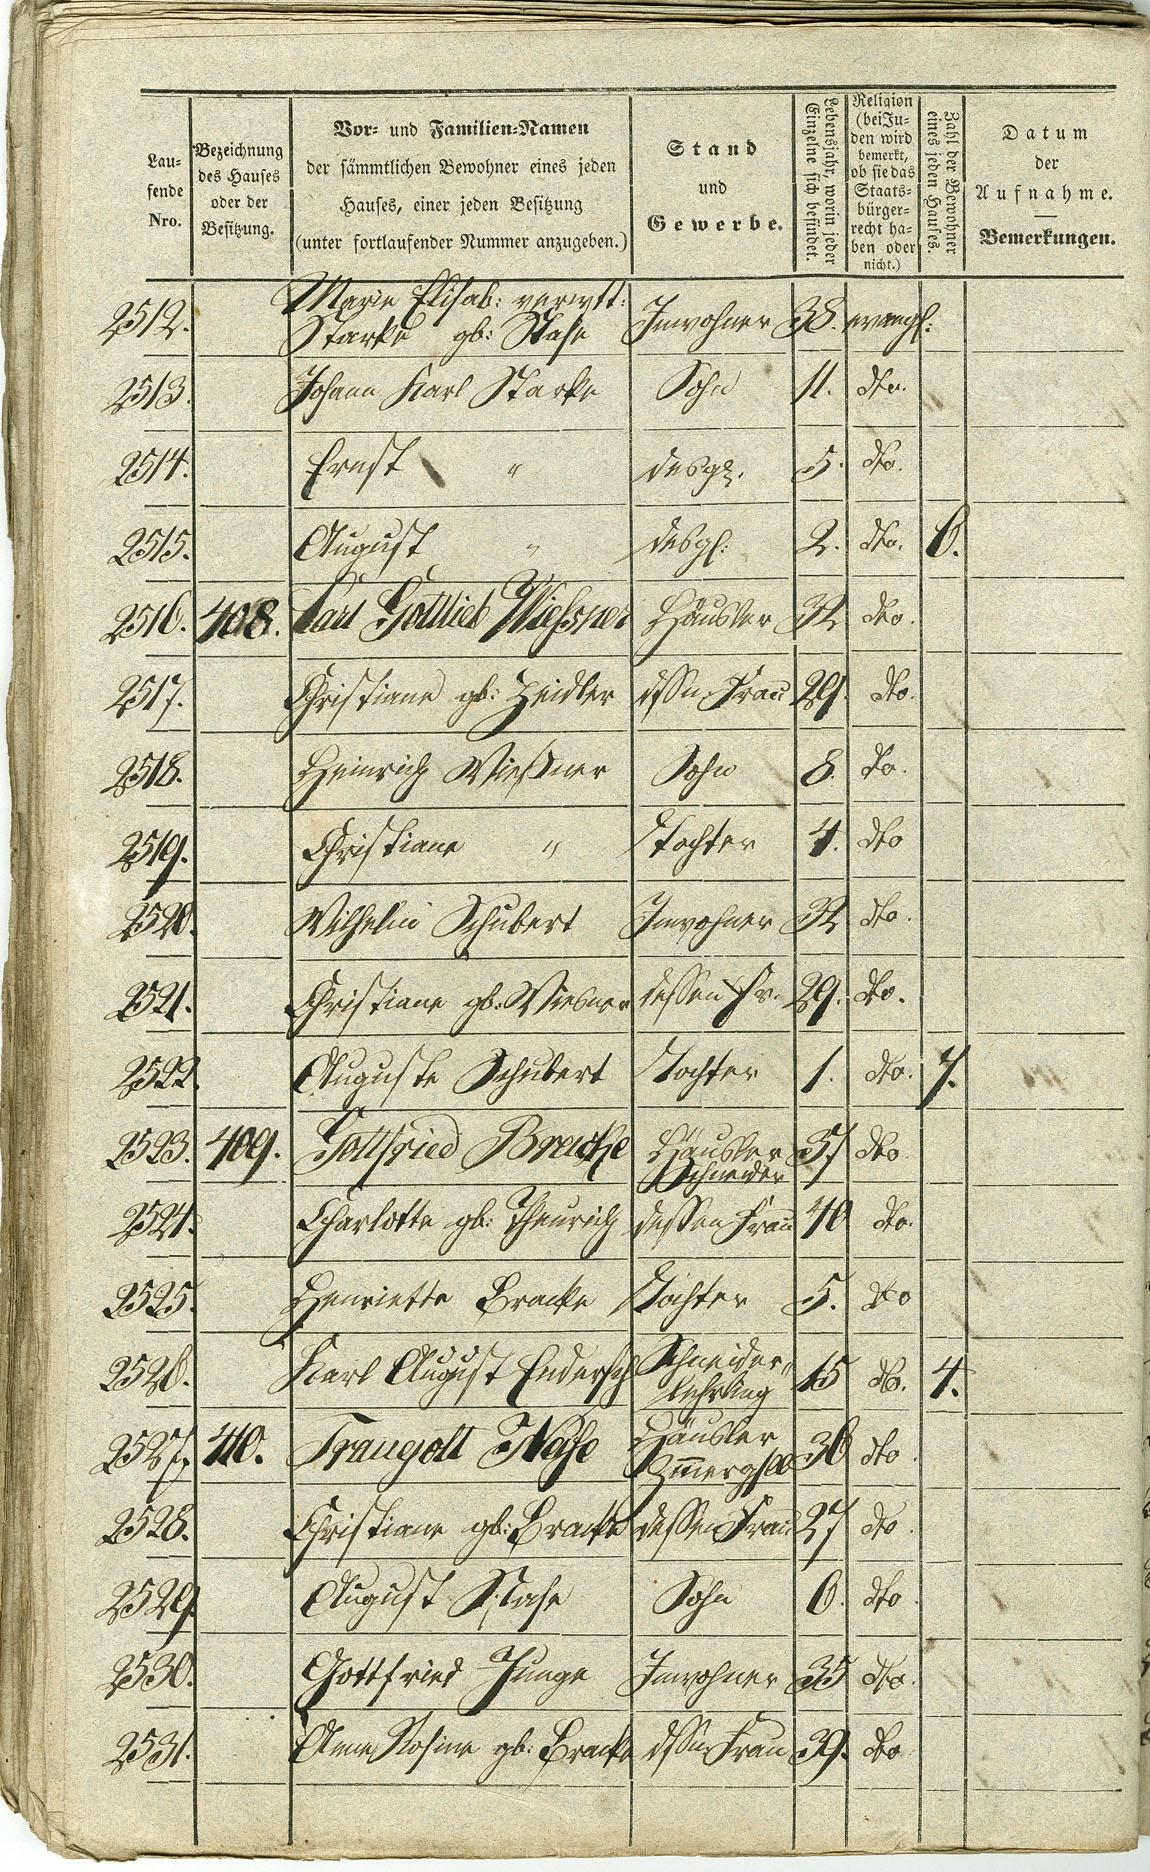 Lau-
fende
Nro.
Bezeichnung
des Hauses
oder der
Besitzung.
Vor- und Familien-Namen
der sämmtlichen Bewohner eines jeden
Hauses, einer jeden Besitzung
(unter fortlaufender Nummer anzugeben.)
Stand
und
Gewerbe.
Lebensjahr, worin jeder
Einzelne sich befindet.
Religion
(bei Ju-
den wird
bemerkt,
ob sie das
Staats-
bürger-
recht ha-
ben oder
nicht.)
Zahl der Bewohner
eines jeden Hauses.
Datum
der
Aufnahme.
Bemerkungen.
Marie Elisab: verwtt:
2512. Starke gb: Nase Inwohner 38. evangl:
2513. Johann Karl Starke Sohn 11. dto.
2514. Ernst " desgl. 5. dto.
2515. August " desgl: 2. dto. 6.
2516. 408. Carl Gottlieb Wiessner Häusler 32 dto.
2517. Christiane gb: Heidler dssn Frau 29. dto.
2518. Heinrich Wießner Sohn 8. dto.
2519. Christiane " Tochter 4. dto
2520. Wilhelm Schubert Inwohner 32 dto.
2521. Christiane gb: Wiesner dessen Fr. 29. dto.
2522. Auguste Schubert Tochter 1. dto. 7.
2523. 409. Gottfried Bracke Häusler 37 dto
Schneider
2524. Charlotte gb: Theurich dessen Frau 40 dto.
2525. Henriette Bracke Tochter 5. dto
2526. Karl August Endersch Schneider- 15 do. 4.
lehrling
2527. 410. Traugott Nase Häusler 36 dto.
2528. Christiane gb: Bracke dessen Frau 27 dto.
2529. August Nase Sohn 6. dto.
2530. Gottfried Junge Inwohner 35 dto.
2531. Anne Rosine gb: Bracke dssn Frau 39. dto.